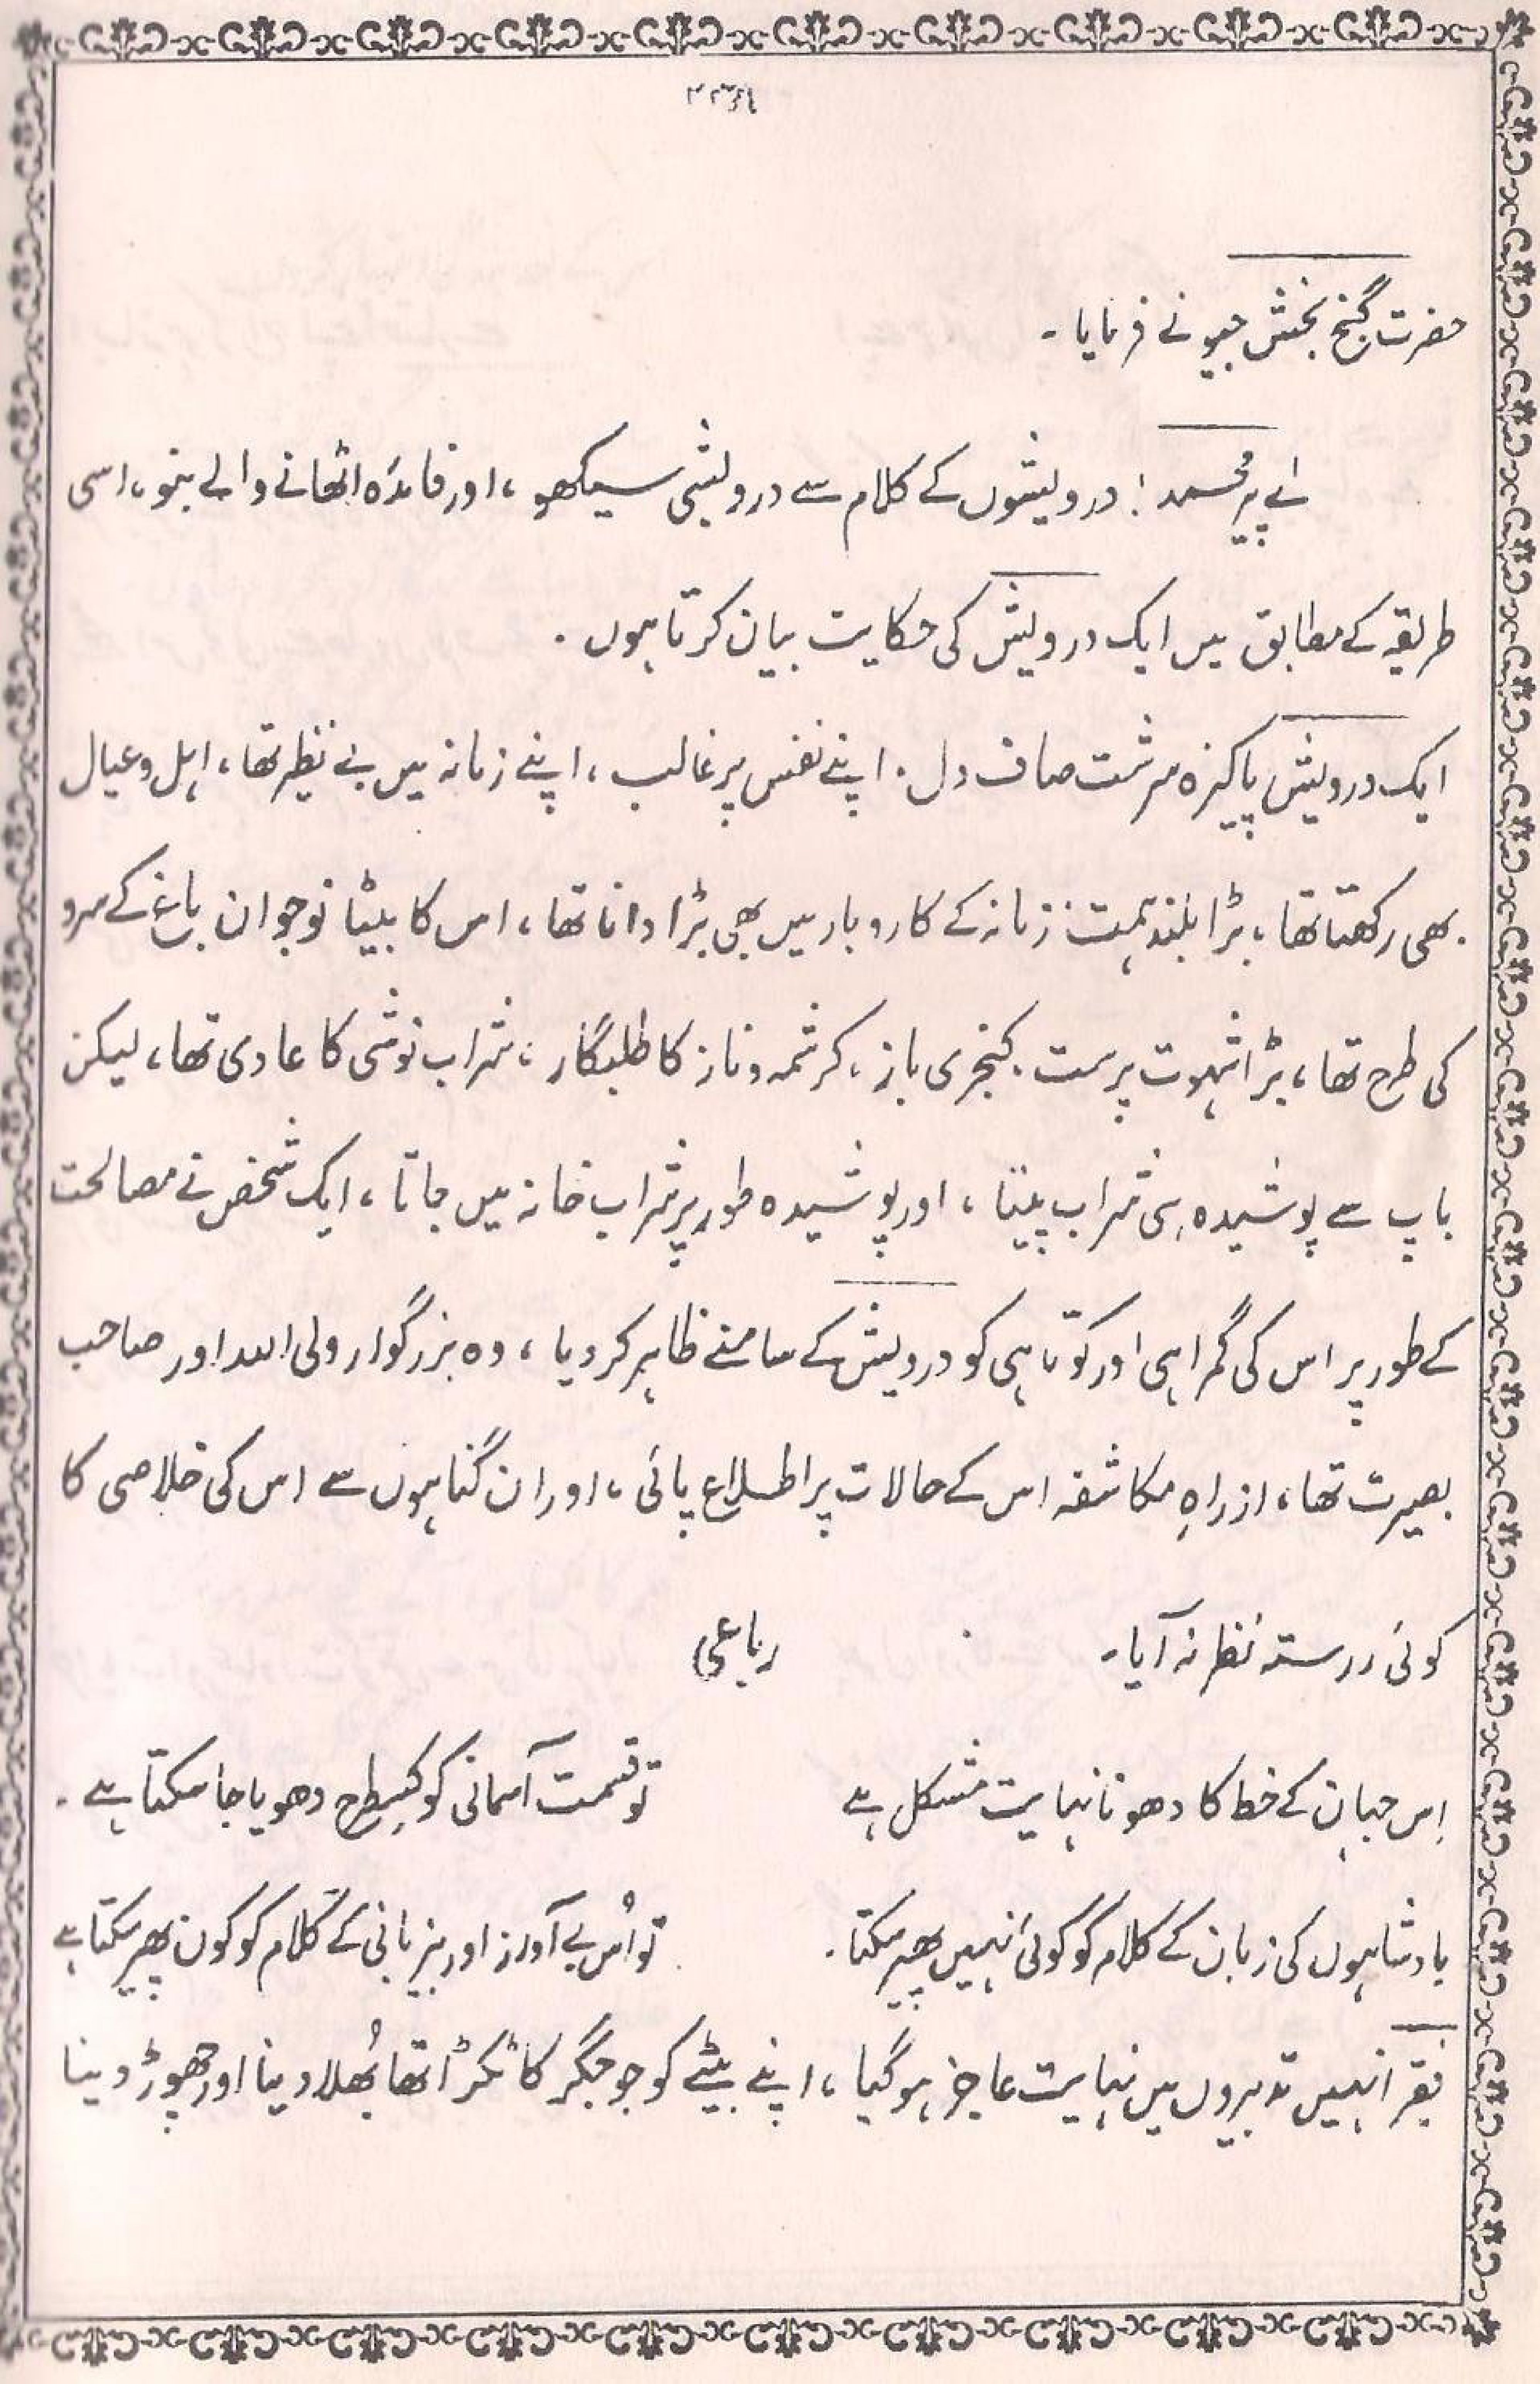 حضرت گنج بخش جیو نے فرمایا۔
اے پیر محمد! درویشوں کے کلام سے درویشی سیکھو، اور فائدہ اٹھانے والے بنو، اسی
طریقہ کے مطابق میں ایک درویش کی حکایت بیان کرتا ہوں۔
ایک درویش پاکیزہ سرشت صاف دل۔ اپنے نفس پر غالب، اپنے زمانہ میں بے نظیر تھا، اہل و عیال
بھی رکھتا تھا، بڑا بلند ہمت زمانہ کے کاروبار میں بھی بڑا دانا تھا، اس کا بیٹا نوجوان باغ کے سرو
کی طرح تھا، بڑا شہوت پرست۔ کنجری باز، کرشمہ و ناز کا طلبگار، شراب نوشی کا عادی تھا، لیکن
باپ سے پوشیدہ ہی شراب پیتا، اور پوشیدہ طور پر شراب خانہ میں جاتا، ایک شخص نے مصالحت
کے طور پر اس کی گمراہی اور کوتاہی کو درویش کے سامنے ظاہر کر دیا، وہ بزرگوار ولی اللہ اور صاحب
بصیرت تھا، از راہِ مکاشفہ اس کے حالات پر اطلاع پائی، اور ان گناہوں سے اس کی خلاصی کا
کوئی ررستہ نظر نہ آیا۔ رباعی
اِس جہان کے خط کا دھونا نہایت مشکل ہے تو قسمت آسمانی کو کسِطرح دھویا جا سکتا ہے۔
بادشاہوں کی زبان کے کلام کو کوئی نہیں پھیر سکتا۔ تو اُس بے آواز اور بیزبانی کے کلام کو کون پھیر سکتا ہے
فقر انہیں تدبیروں میں نہایت عاجز ہو گیا، اپنے بیٹے کو جو جگر کا ٹکڑا تھا بُھلا دینا اور چھوڑ دینا